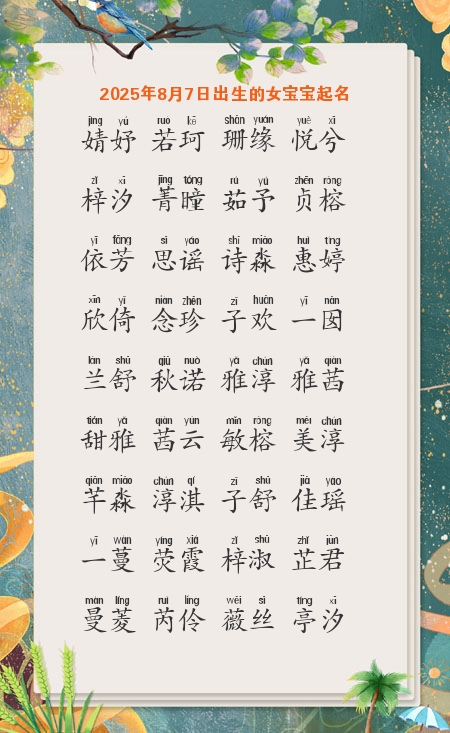 2025年8月7日出生的女宝宝起名
jìng yú ruò kē shān yuán yuè xī
婧妤 若珂 珊缘 悦兮
zǐ xī jīng tóng rú yǔ zhēn róng
梓汐 菁瞳 茹予 贞榕
yī fāng sī yáo shī miǎo huì tíng
依芳 思谣 诗淼 惠婷
xīn yǐ niàn zhēn zǐ huān yī nān
欣倚 念珍 子欢 一囡
lán shū qiū nuò yǎ chún yǎ qiàn
兰舒 秋诺 雅淳 雅茜
tián yǎ qiàn yún mǐn róng měi chún
甜雅 茜云 敏榕 美淳
qiān miǎo chún qí zǐ shū jiā yáo
芊淼 淳淇 子舒 佳瑶
yī wàn yíng xiá zǐ shū zhǐ jūn
一蔓 荧霞 梓淑 芷君
màn líng ruì líng wēi sī tíng xī
曼菱 芮伶 薇丝 亭汐